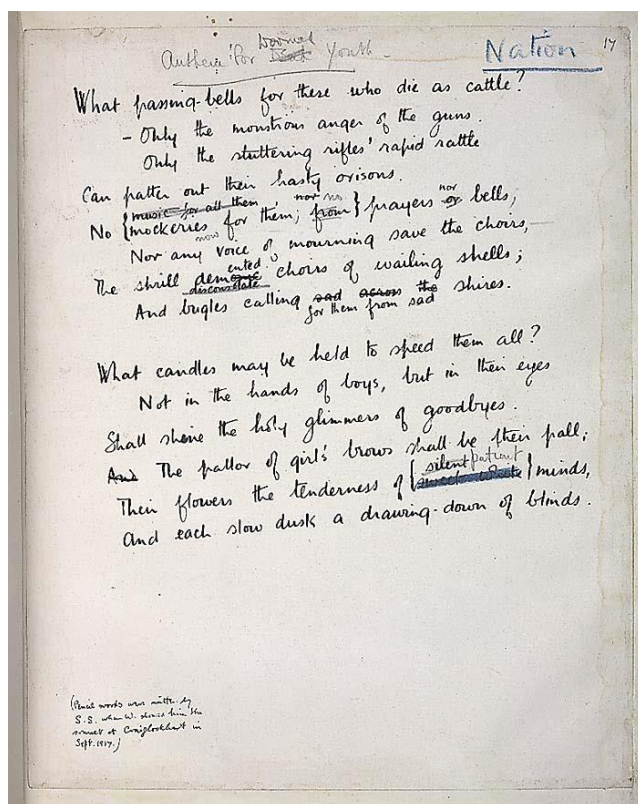 Anthem for Doomed Youth
Nation
17
What passing-bells for these who die as cattle?
- Only the monstrous anger of the guns.
Only the stuttering rifles' rapid rattle
Can patter out their hasty orisons.
music for all them nor no
No { mockeries for them; from } prayers nor or bells,
now
Nor any voice of mourning save the choirs,
ented
The shrill demonic choirs of wailing shells;
disconsolate
And bugles calling sad across the shires.
for them from sad
What candles may be held to speed them all?
Not in the hands of boys, but in their eyes
Shall shine the holy glimmers of goodbyes.
And The pallor of girls' brows shall be their pall;
silent patient
Their flowers the tenderness of { } minds,
And each slow dusk a drawing-down of blinds.
(Pencil words were written by
S.S. when W. showed him the
sonnet at Craiglockhart in
Sept. 1917.)